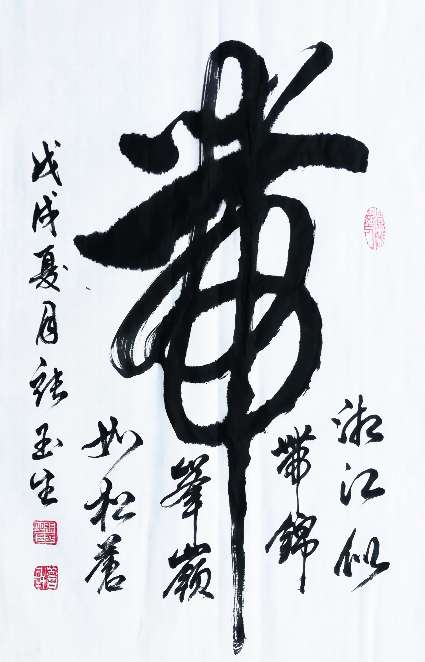 帶
湘江似
帶錦
峯嶺
如松蒼
戊戌夏月張玉生